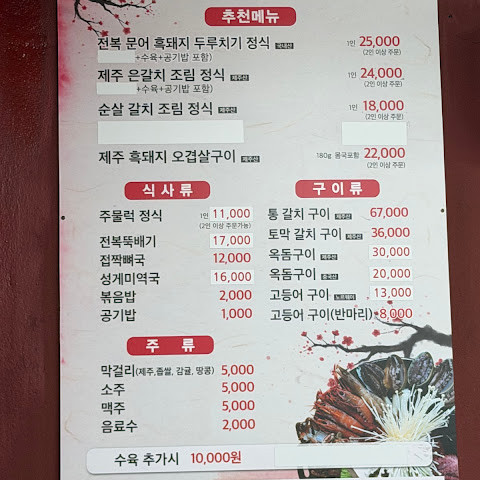 추천메뉴
전복 문어 흑돼지 두루치기 정식 국내산 1인 25,000
+수육+공기밥 포함) (2인 이상 주문)
제주 은갈치 조림 정식 제주산 1인 24,000
+수육+공기밥 포함) (2인 이상 주문)
순살 갈치 조림 정식 제주산 1인 18,000
(2인 이상 주문)
제주 흑돼지 오겹살구이 제주산 180g 몸국포함 22,000
(2인 이상 주문)
식사류
주물럭 정식 1인 11,000
(2인 이상 주문가능)
전복뚝배기 17,000
접짝뼈국 12,000
성게미역국 16,000
볶음밥 2,000
공기밥 1,000
구이류
통 갈치 구이 제주산 67,000
토막 갈치 구이 제주산 36,000
옥돔구이 제주산 30,000
옥돔구이 중국산 20,000
고등어 구이 노르웨이 13,000
고등어 구이(반마리) 8,000
주류
막걸리(제주,좁쌀, 감귤, 땅콩) 5,000
소주 5,000
맥주 5,000
음료수 2,000
수육 추가시 10,000원